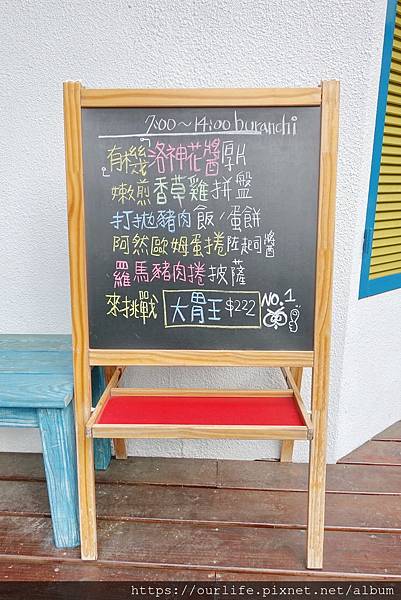 7:00~14:00 buranchi
「有機洛神花醬厚片
嫩煎香草雞拼盤
打拋豬肉飯/蛋餅
阿然歐姆蛋捲陸起司醬
羅馬豬肉捲披薩
來挑戰 大胃王 $222 NO.1
https://ourlife.pixnet.net/album